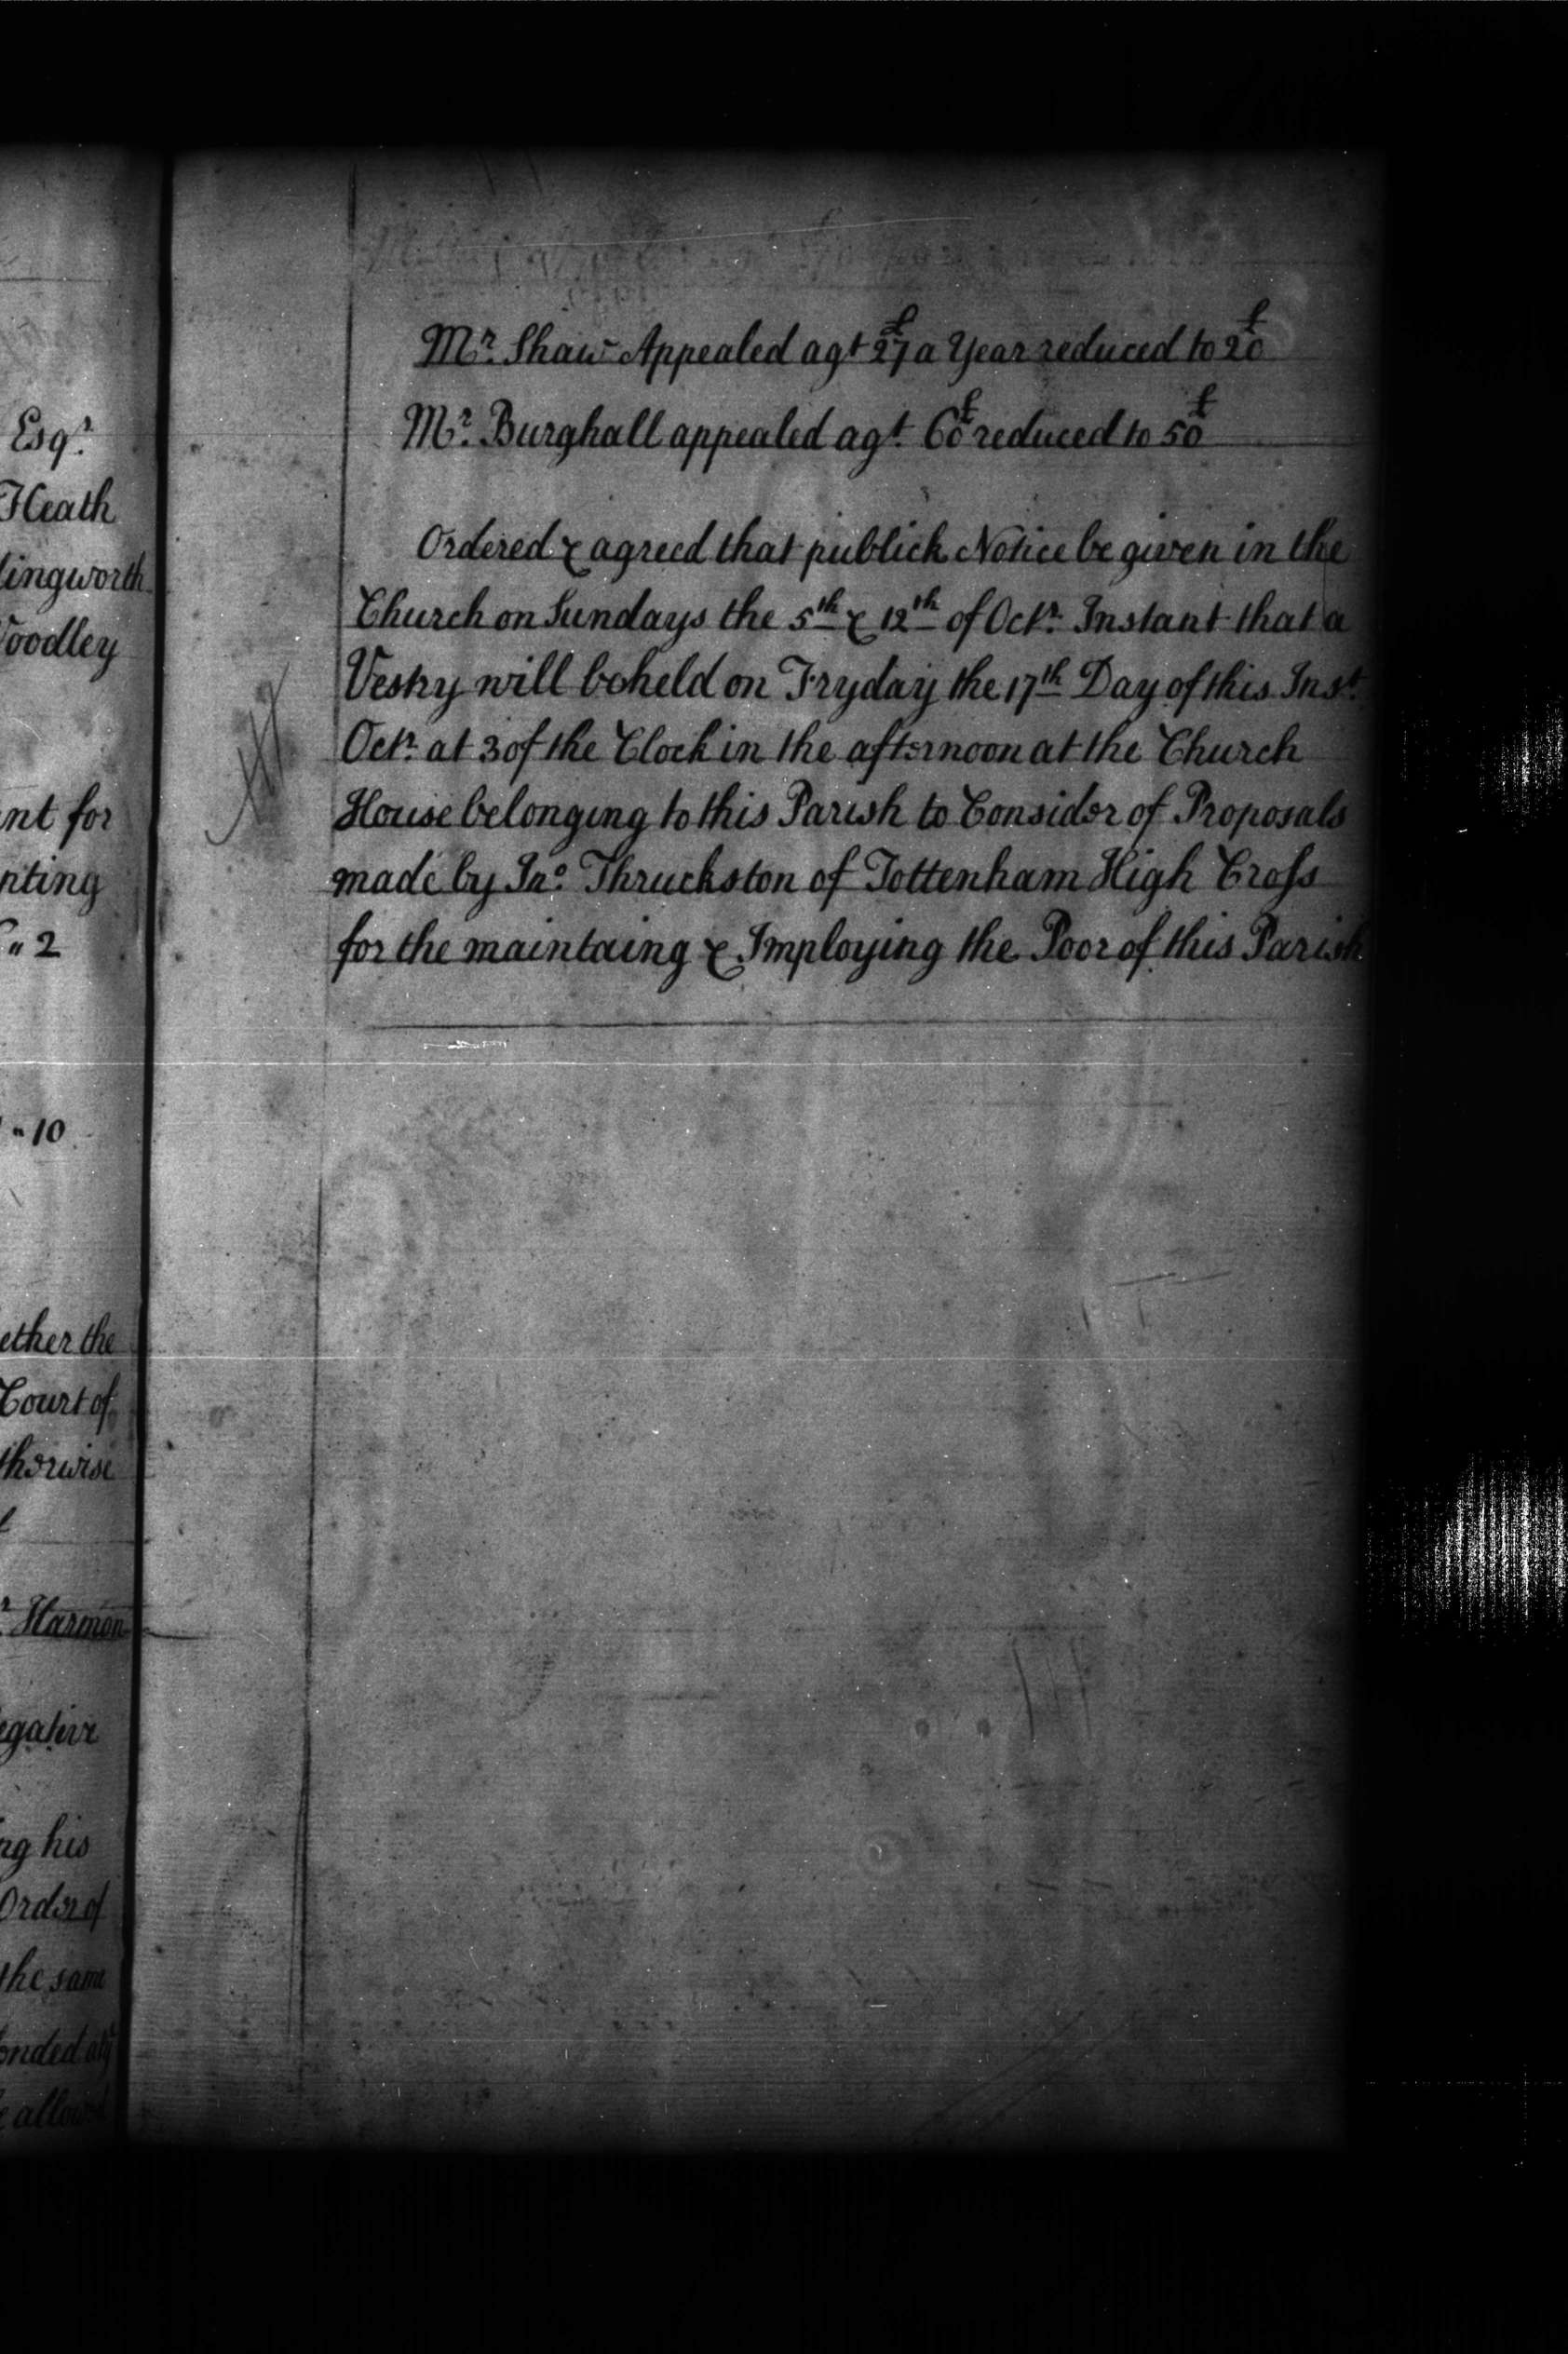 Esqr.
Heath
lingworth
oodley
nt for
nting
" 2
" 10
ether the
Court of
therwise
Harmon
egative
ng his
Order of
the same
onded
allow
Mr. Shaw Appealed agt £27 a Year reduced to £20
Mr. Burghall appealed agt. 60£ reduced to 50£
Ordered & agreed that publick Notice be given in the
Church on Sundays the 5th & 12th of Octr. Instant that a
Vestry will beheld on Fryday the 17th Day of this Inst.
Octr. at 3 of the Clock in the afternoon at the Church
House belonging to this Parish to Consider of Proposals
made by Jno. Thruckston of Tottenham High Cross
for the maintaing & Imploying the Poor of this Parish